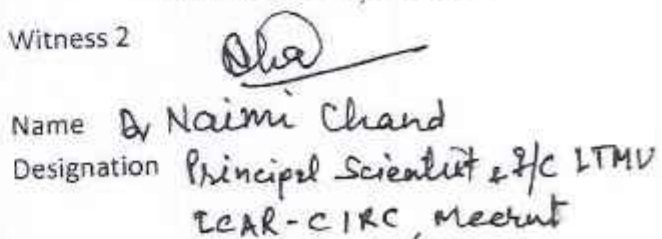 Witness 2
Name Dr Naimi Chand
Designation Principal Scientist & I/C LTMU
ICAR-CIRC, Meerut